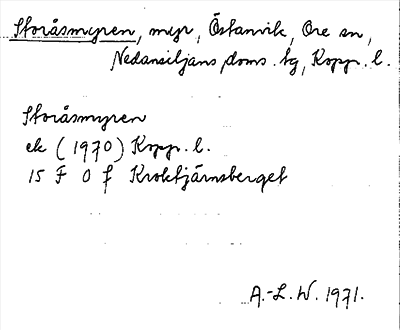 Storåsmyren, myr, Östanvik, Ore sn,
Nedansiljans doms. tg, Kopp. l.
Storåsmyren
ek (1970) Kopp. l.
15 F 0 f Kroktjärnsberget
A.-L. W. 1971.